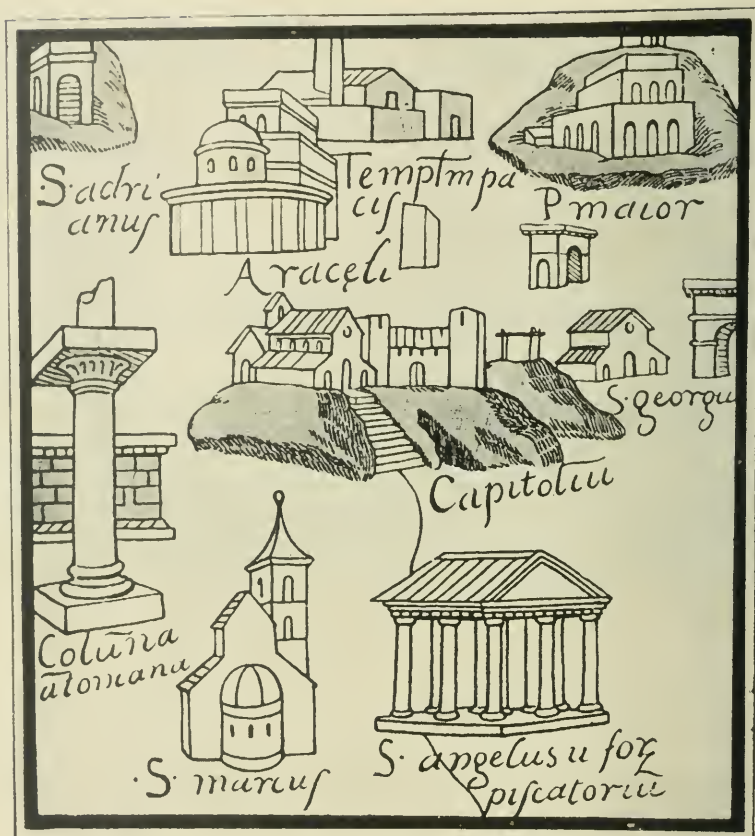 S. adri
anuſ
Temptm pa
ciſ
P maior
Aracęli
S. georgii
Capitoliū
Colūna
ātoniana
·S· marcuſ
S. angelus ū foꝝ
piſcatoriū